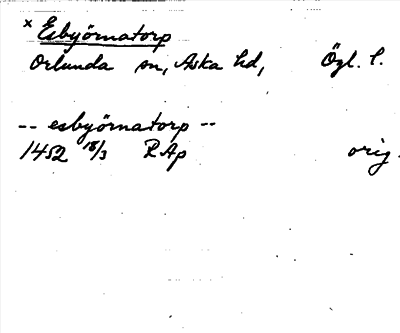 x Esbyörnatorp
Orlunda sn, Aska hd, Ögl. l.
-- esbyörnatorp --
1452 18/3 RAp orig.